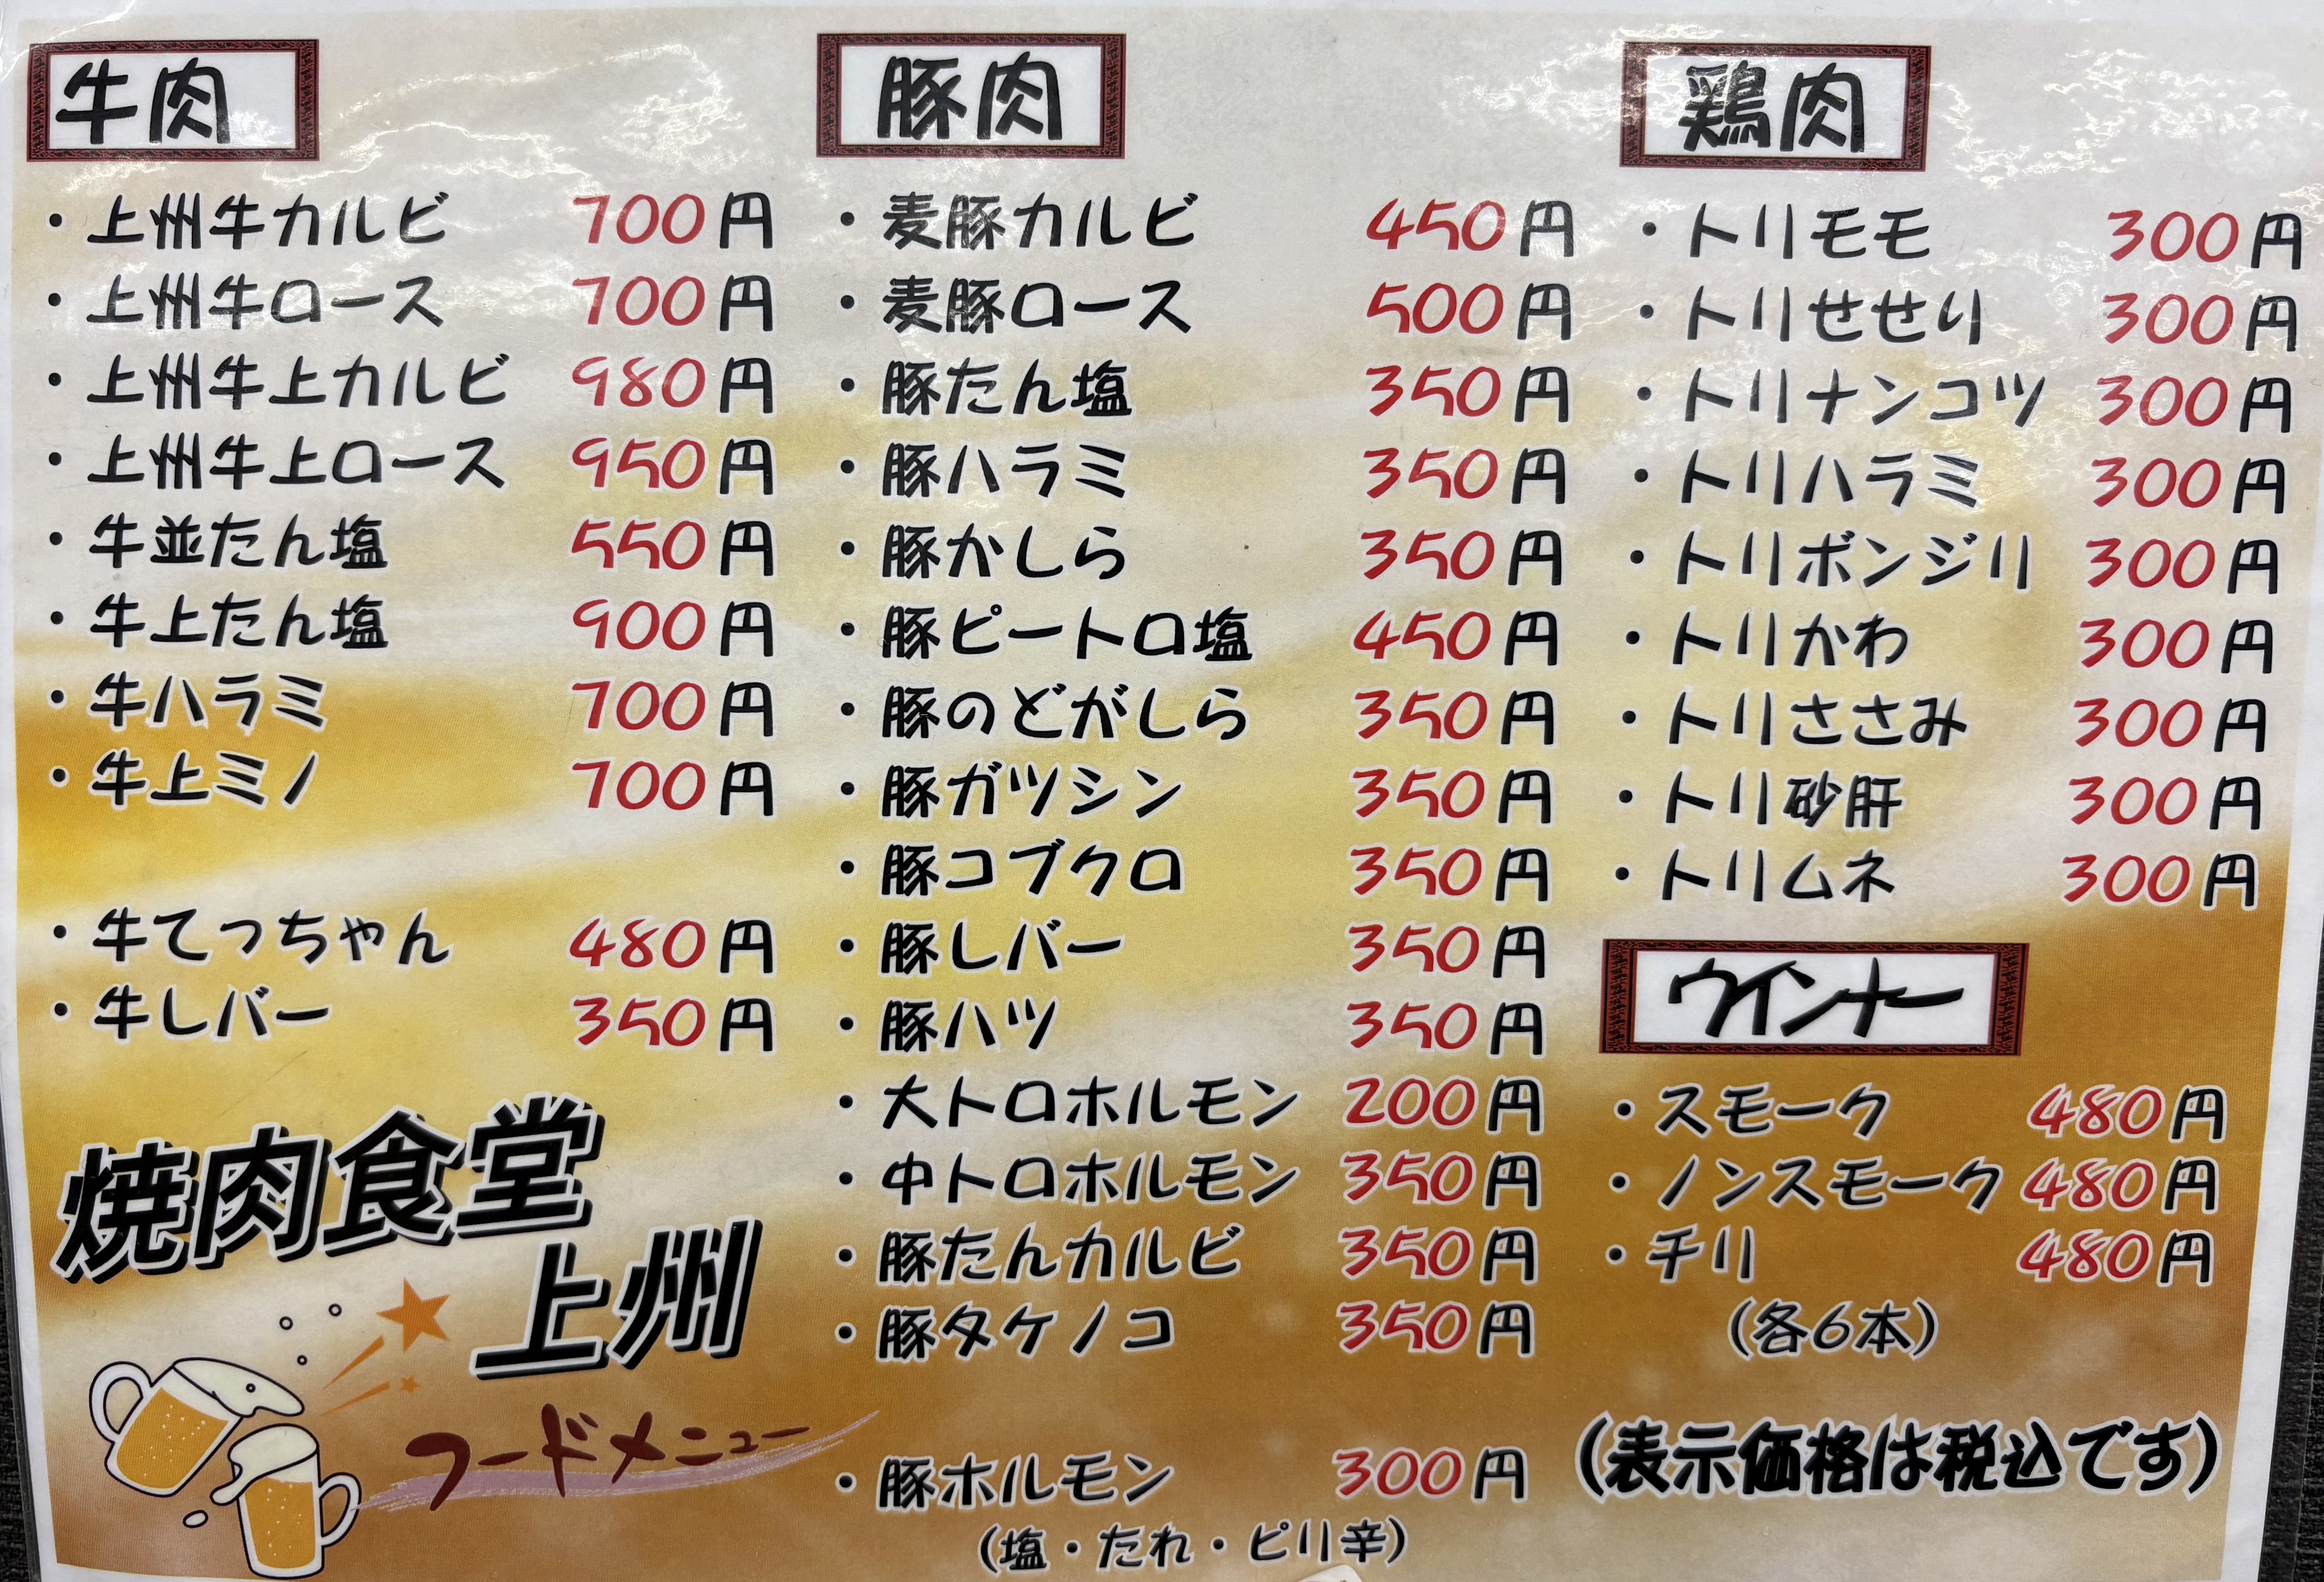 牛肉
・上州牛カルビ 700円
・上州牛ロース 700円
・上州牛上カルビ 980円
・上州牛上ロース 950円
・牛並たん塩 550円
・牛上たん塩 900円
・牛ハラミ 700円
・牛上ミノ 700円
・牛てっちゃん 480円
・牛レバー 350円
焼肉食堂
上州
フードメニュー
豚肉
・麦豚カルビ 450円
・麦豚ロース 500円
・豚たん塩 350円
・豚ハラミ 350円
・豚かしら 350円
・豚ピートロ塩 450円
・豚のどがしら 350円
・豚ガツシン 350円
・豚コブクロ 350円
・豚レバー 350円
・豚ハツ 350円
・大トロホルモン 200円
・中トロホルモン 350円
・豚たんカルビ 350円
・豚タケノコ 350円
・豚ホルモン 300円
(塩・たれ・ピリ辛)
鶏肉
・トリモモ 300円
・トリせせり 300円
・トリナンコツ 300円
・トリハラミ 300円
・トリボンジリ 300円
・トリかわ 300円
・トリささみ 300円
・トリ砂肝 300円
・トリムネ 300円
ウインナー
・スモーク 480円
・ノンスモーク 480円
・チリ 480円
(各6本)
(表示価格は税込です)